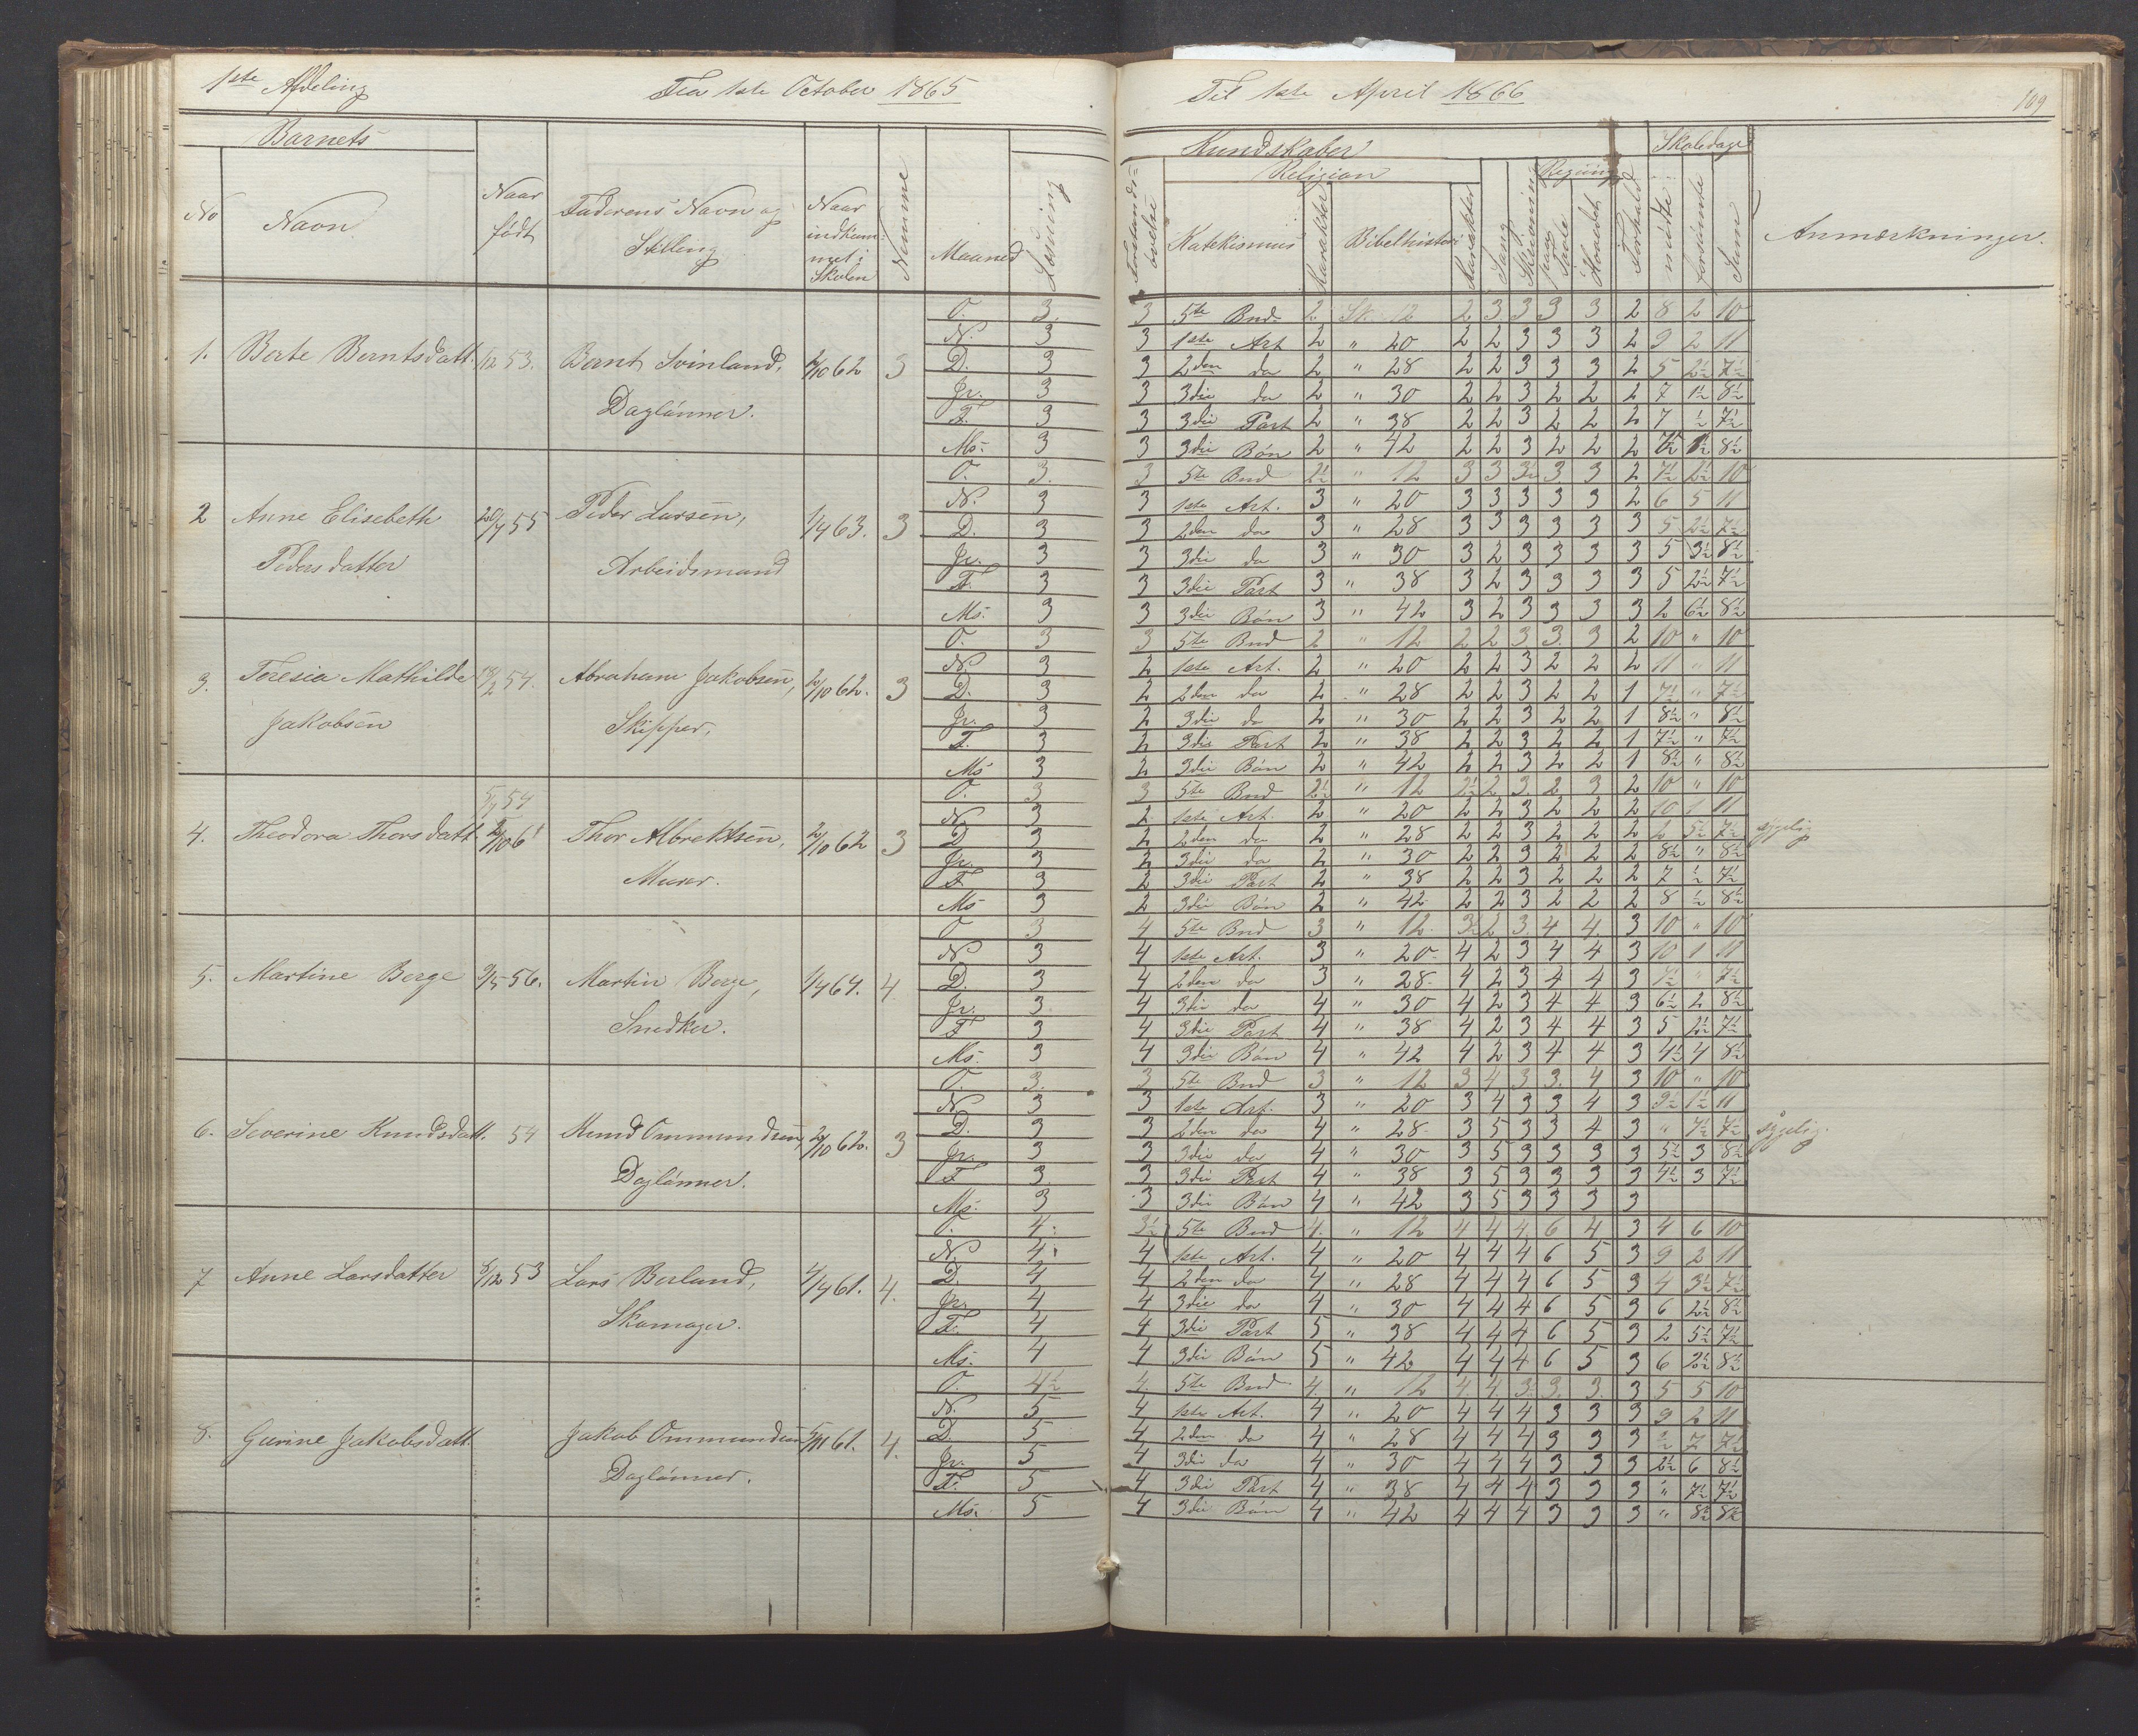 1ste Afdeling Fra 1ste October 1865 Til 1ste April 1866 109
Barnets Kundskaber Skoledage
Religion Regning
No Navn Naar født Faderens Navn og Stilling Naar indkommet i Skolen Nummer Maaned Læsning Forstandsøvelse Katekismus Karakter Bibelhistori Karakter Sang Skrivning paa Tavle Hovedet Forhold mødte forsømte Sum Anmærkninger.
O. 3. 3 5te Bud. 2 Sk. 12 2 3 3 3 3 2 8 2 10
N. 3 3 1ste Art 2 " 20 2 2 3 3 3 2 9 2 11
1. Berte Berntsdatt. 1/12 53. Bernt Svinland, 2/10 62 3 D. 3 3 2den do 2 " 28 2 2 3 3 3 2 5 2½ 7½
Jr. 3 3 3die do 2 " 30 2 2 3 2 2 2 7 1½ 8½
Daglønner. F. 3 3 3die Part 2 " 38 2 2 3 2 2 2 7 ½ 7½
Ms. 3 3 3die Bøn 2 " 42 2 2 3 2 2 2 7½ 1½ 8½
O. 3. 3 5te Bud 2½ " 12 3 3 3½ 3 3 2 7½ 2½ 10
2 Anne Elisebeth 20/7 55 Peder Larsen, 1/4 63. 3 N. 3 3 1ste Art. 3 " 20 3 3 3 3 3 2 6 5 11
D. 3 3 2den do 3 " 28 3 3 3 3 3 3 5 2½ 7½
Pedersdatter Arbeidsmand Jr. 3 3 3die do 3 " 30 3 2 3 3 3 3 5 3½ 8½
F. 3 3 3die Part 3 " 38 3 2 3 3 3 3 5 2½ 7½
Ms. 3 3 3die Bøn 3 " 42 3 2 3 3 3 3 2 6½ 8½
O. 3 3 5te Bud 2 " 12 2 2 3 3. 3 2 10 " 10
3. Teresia Mathilde 54. Abraham Jakobsen, 2/10 62. 3 N. 3 2 1ste Art. 2 " 20 2 2 3 2 2 2 11 " 11
D. 3 2 2den do 2 " 28 2 2 3 2 2 1 7½ " 7½
Jakobsen Skipper, Jr. 3 2 3die do 2 " 30 2 2 3 2 2 1 8½ " 8½
F. 3 2 3die Part 2 " 38 2 2 3 2 2 1 7½ " 7½
Ms 3 2 3die Bøn 2 " 42 2 2 3 2 2 1 8½ " 8½
5/7 54 O. 3 3 5te Bud 2½ " 12 2½ 2 3. 2 3 2 10 " 10
4. Theodora Thorsdatt Thor Albrektsen, 2/10 62 3 N. 3 2 1ste Art. 2 " 20 2 2 3 2 2 2 10 1 11
D 3 2 2den do 2 " 28 2 2 3 2 2 2 2 5½ 7½ sygelig
Jr. 3 2 3die do 2 " 30 2 2 3 2 2 2 8½ " 8½
Murer. F 3 2 3die Part 2 " 38 2 2 3 2 2 2 7 ½ 7½
Ms 3 2 3die Bøn 2 " 42 2 2 3 2 2 2 8 ½ 8½
O 3 4 5te Bud 3 " 12. 3½ 2 3. 4 4. 3 10 " 10
N 3 4 1ste Art. 3 " 20 4 2 3 4 4 3 10 1 11
5. Martine Berge 9/5 56. Martin Berge, 1/4 64. 4 D. 3 4 2den do 3 " 28. 4 2 3 4 4 3 7½ " 7½
Jr. 3 4 3die do 4 " 30 4 2 3 4 4 3 6½ 2 8½
Snedker. F 3 4 3die Part 4 " 38 4 2 3 4 4 3 5 2½ 7½
Ms. 3 4 3die Bøn 4 " 42 4 2 3 4 4 3 4½ 4 8½
O. 3. 3 5te Bud 3 " 12 3 4 3 3. 4 3 10 " 10
N 3 3 1ste Art. 3 " 20 3 4 3 3 4 3 9½ 1½ 11
6. Severine Knudsdatt. 54 Knud Ommundsen, 2/10 62. 3 D. 3 3 2den do 4 " 28 3 5 3 3 4 3 " 7½ 7½ sygelig.
Jr. 3 3 3die do 4 " 30 3 5 3 3 3 3 5½ 3 8½
Daglønner. F 3 3 3die Part 4 " 38 3 5 3 3 3 3 4½ 3 7½
Ms. 3 3 3die Bøn 4 " 42 3 5 3 3 3 3
O. 4. 3½ 5te Bud 4. " 12 4 4 4. 6 4 3 4 6 10
N. 4. 4 1ste Art. 4 " 20 4 4 4 6 5 3 9 2 11
7 Anne Larsdatter 8/12 53 Lars Berland, 4/4 61. 4. D. 4 4 2den do 4 " 28 4 4 4 6 5 3 4 3½ 7½
Jr. 4 4 3die do 4 " 30 4 4 4 6 5 3 6 2½ 8½
Skomager. F. 4 4 3die Part 5 " 38 4 4 4 6 5 3 2 5½ 7½
Ms. 4 4 3die Bøn 5 " 42 4 4 4 6 5 3 6 2½ 8½
O. 4½ 4. 5te Bud 4. " 12 4. 4. 3. 3. 3. 3 5 5 10
N. 5 4 1ste Art. 4 " 20 4 4 4 3 3 3 9 2 11
8. Gurine Jakobsdatt Jakob Ommundsen 5/11 61. 4. D. 5 4 2den do 4 " 28 4 4 4 3 3 3 ½ 7 7½
Jr. 5 4 3die do 4 " 30 4 4 4 3 3 3 2½ 6 8½
Daglønner. F. 5 4 3die Part 4 " 38 4 4 4 3 3 3 " 7½ 7½
Ms. 5 4 3die Bøn 4 " 42 4 4 4 3 3 3 " 8½ 8½